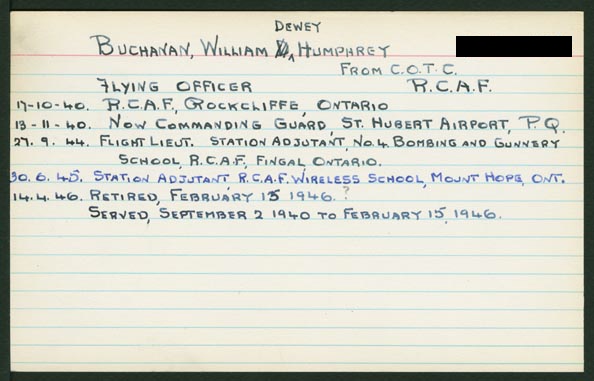 DEWEY
BUCHANAN, WILLIAM D, HUMPHREY
FROM C.O.T.C.
FLYING OFFICER R.C.A.F.
17-10-40. R.C.A.F., ROCKCLIFFE, ONTARIO
13-11-40. NOW COMMANDING GUARD, ST. HUBERT AIRPORT, P.Q.
27.9.44. FLIGHT LIEUT. STATION ADJUTANT, NO.4 BOMBING AND GUNNERY
SCHOOL, R.C.A.F., FINGAL ONTARIO.
30.6.45. STATION ADJUTANT, R.C.A.F. WIRELESS SCHOOL, MOUNT HOPE, ONT.
14.4.46. RETIRED, FEBRUARY 15 1946. ?
SERVED, SEPTEMBER 2 1940 TO FEBRUARY 15, 1946.